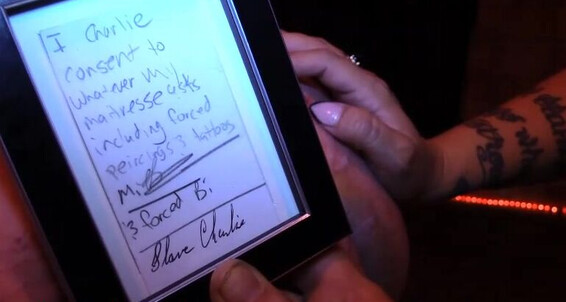 I Charlie
consent to
whatever my
maitresse asks
including forced
peircings & tattoos
& forced Bi
Slave Charlie